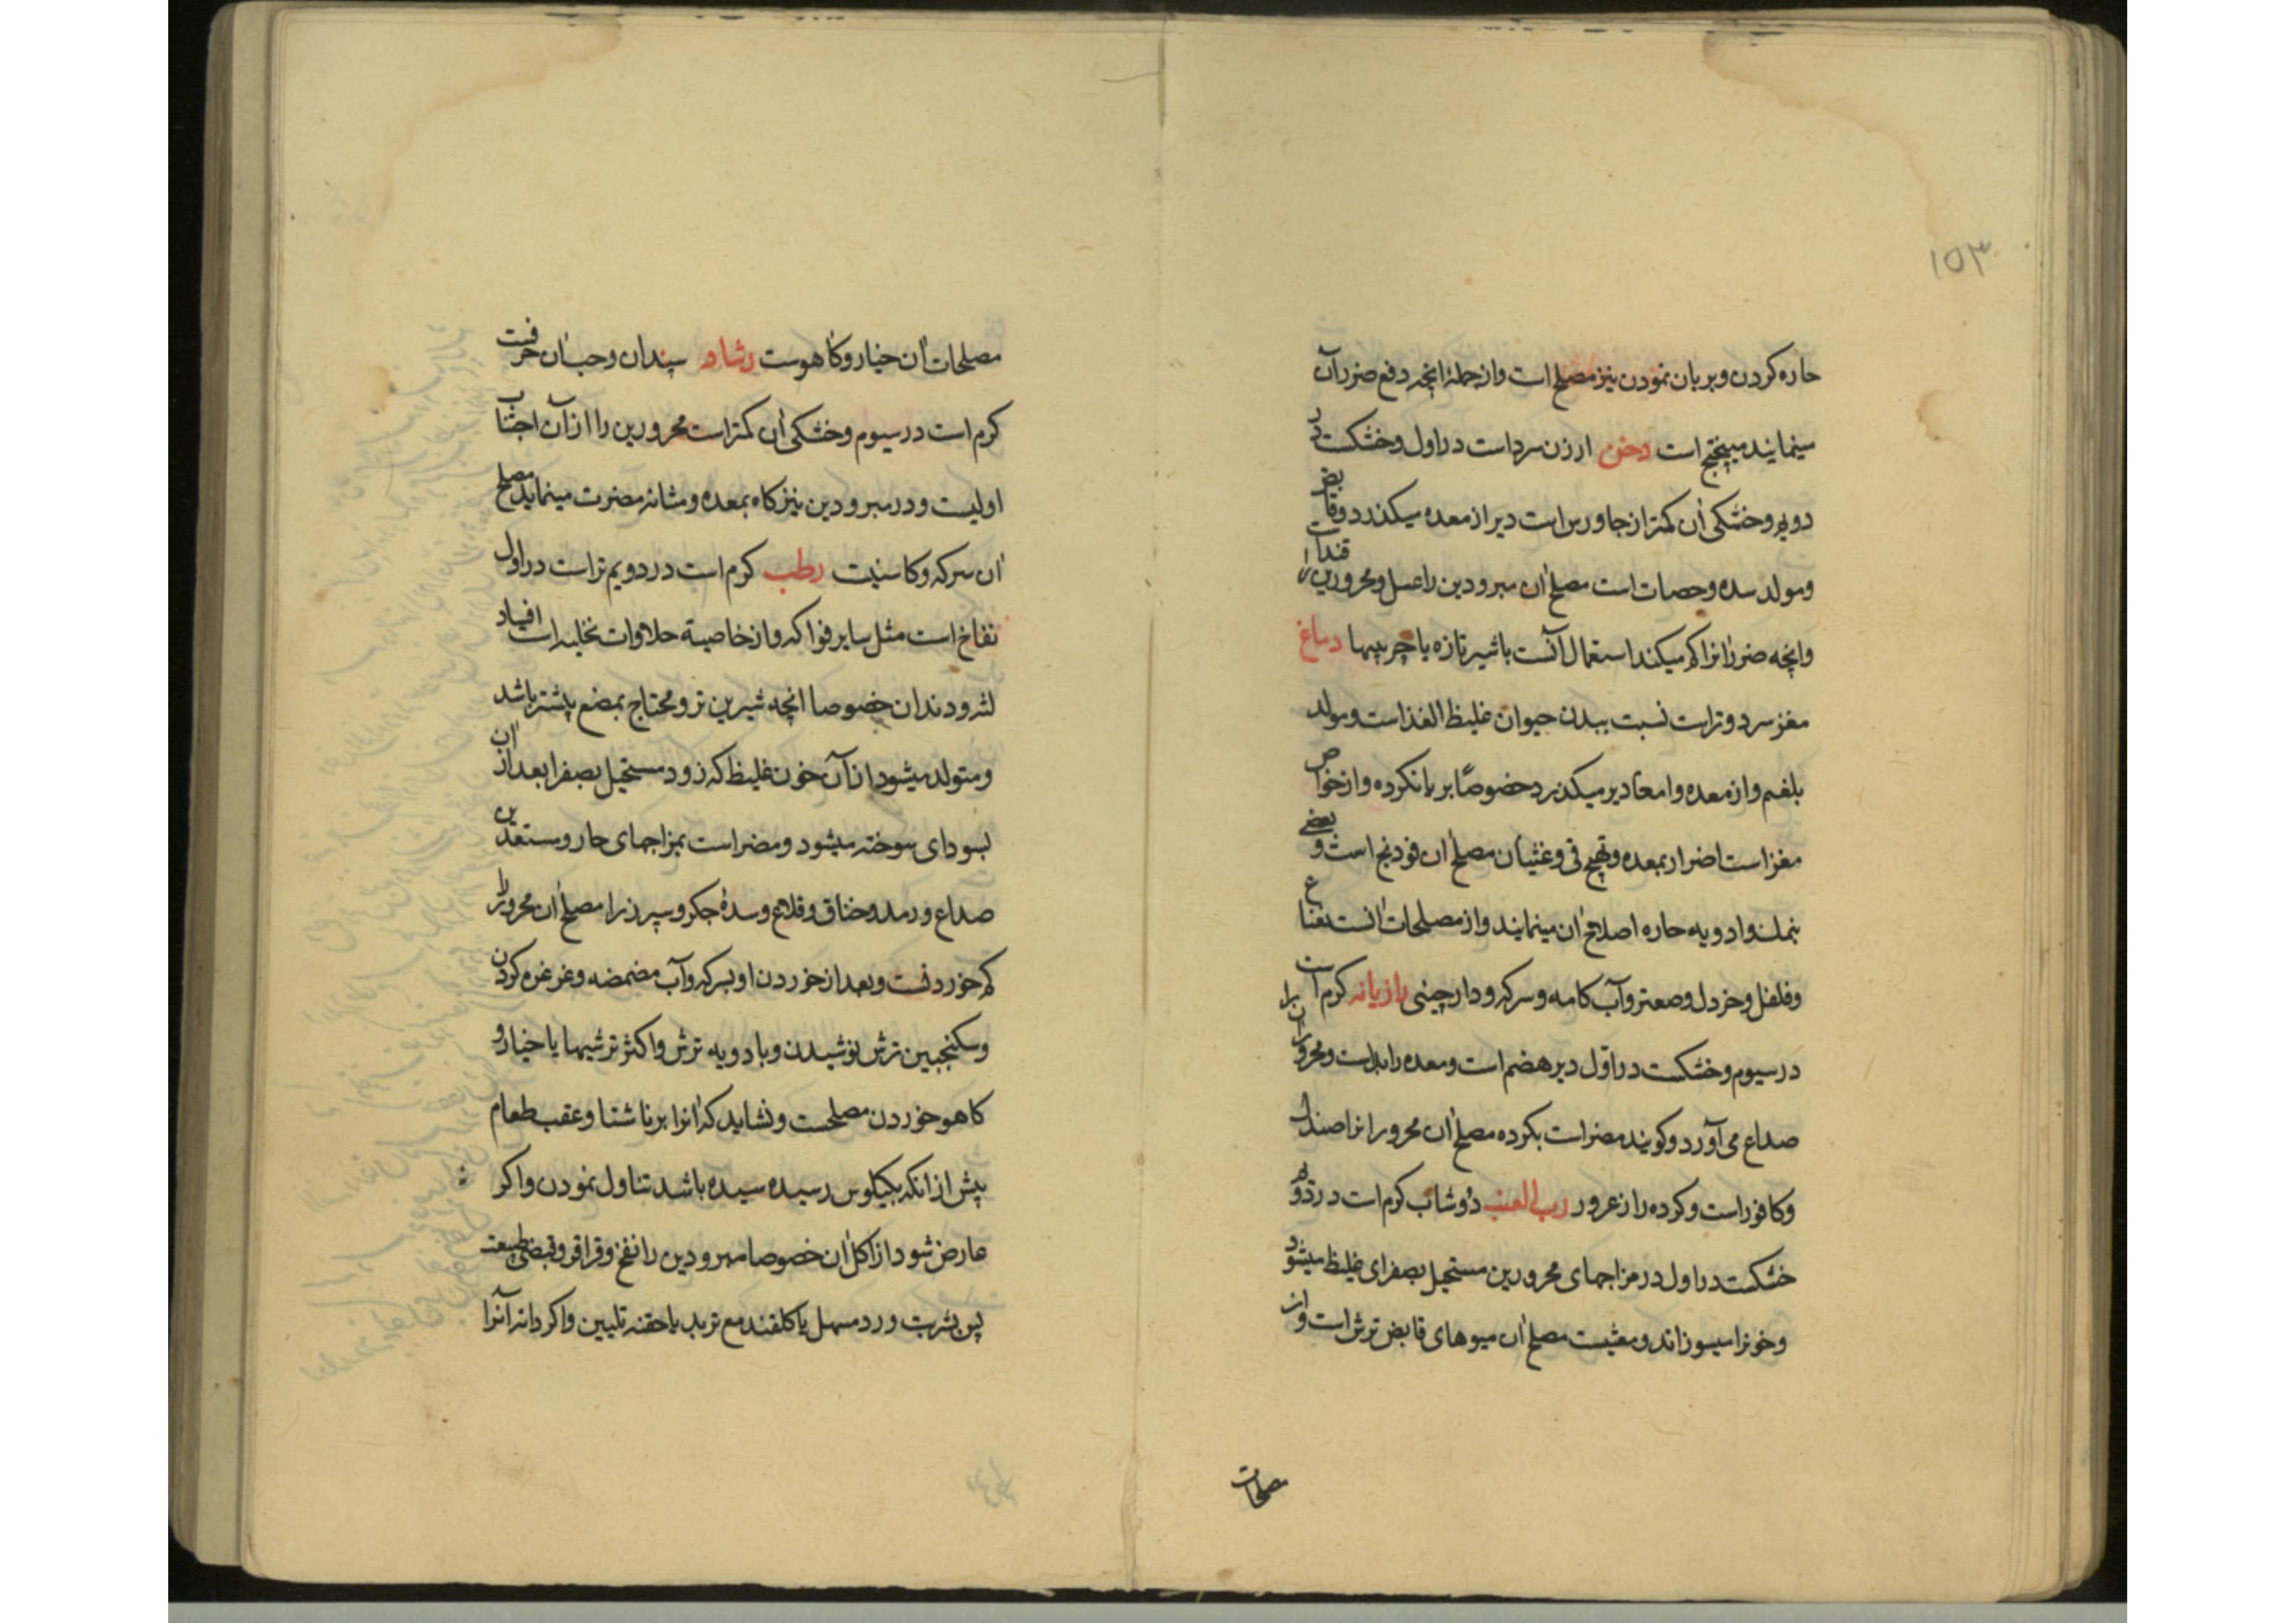 ١٥٣
حاره كردن و بريان نمودن نيز مصلح است و از جملهٔ انچه دفع ضرر آن
مينمايند ميپختج است دخن ارزن سرد است در اول و خشكست در
دويم و خشكى آن كمتر از جاورس است دير از معده ميكذرد و قابض
و مولد سده و حصات است مصلح آن مبرودين را عسل و محرورين را قند است
وانچه ضرر آنرا كم ميكند استعمال آنست باشير تازه يا چربيها دماغ
مغز سرد و تر است نسبت ببدن حيوان غليظ الغذا است و مولد
بلغم و از معده و امعا دير ميكذرد خصوصًا بريانكرده و از خواص
مغز است اضرار بمعده و تهيج قى و غثيان مصلح آن فودنج است و بعضى
بنمك و ادويه حاره اصلاح آن مينمايند و از مصلحات آنست نعناع
و فلفل و خردل و صعتر و آب كامه و سركه و دارچينى رازيانه كرم است
در سيوم و خشكست در اول دير هضم است و معده را بد است و محرورانرا
صداع مى آورد و كويند مضر است بكرده مصلح آن محرورانرا صندل
و كافور است و كرده را زعرور رب العنب دوشاب كرم است در دويم
خشكست در اول در مزاجهاى محرورين مستحيل بصفراى غليظ ميشود
و خونرا ميسوزاند و مغثيست مصلح آن ميوهاى قابض ترش است و از
مصلحات
مصلحات آن خيار و كاهوست رشاد سپندان و حب آن حرفست
كرم است در سيوم و خشكى آن كمتر است محرورين را از آن اجتناب
اوليست و در مبرودين نيز كاه بمعده و مثانه مضرت مينمايد مصلح
آن سركه و كاسنيت رطب كرم است در دويم تر است در اول
نفاخ است مثل ساير فواكه و از خاصية حلاوات نخليه است افساد
لثه و دندان خصوصا انچه شيرين تر و محتاج بمضغ بيشتر باشد
و متولد ميشود از آن خون غليظ كه زود مستحيل بصفرا بعد از آن
بسوداى سوخته ميشود و مضر است بمزاجهاى حار و مستعدين
صداع و رمد و خناق و قلاع و سدهٔ جكر و سپرز را مصلح آن محرور را
كم خوردنست و بعد از خوردن او بسركه و آب مضمضه و غرغره كردن
و سكنجبين ترش نوشيدن و با ادويه ترش و اكثر ترشيها يا خيار و
كاهو خوردن مصلحست و نشايد كه آنرا بر ناشتا و عقب طعام
پيش از انكه بكيلوس رسيده باشد تناول نمودن و اكر
عارض شود از اكل آن خصوصا مبرودين را نفخ و قراقر و قبض طبيعت
پس بشربت ورد مسهل يا كلقند مع تربد يا حقنه تليين و اكر دانه آنرا